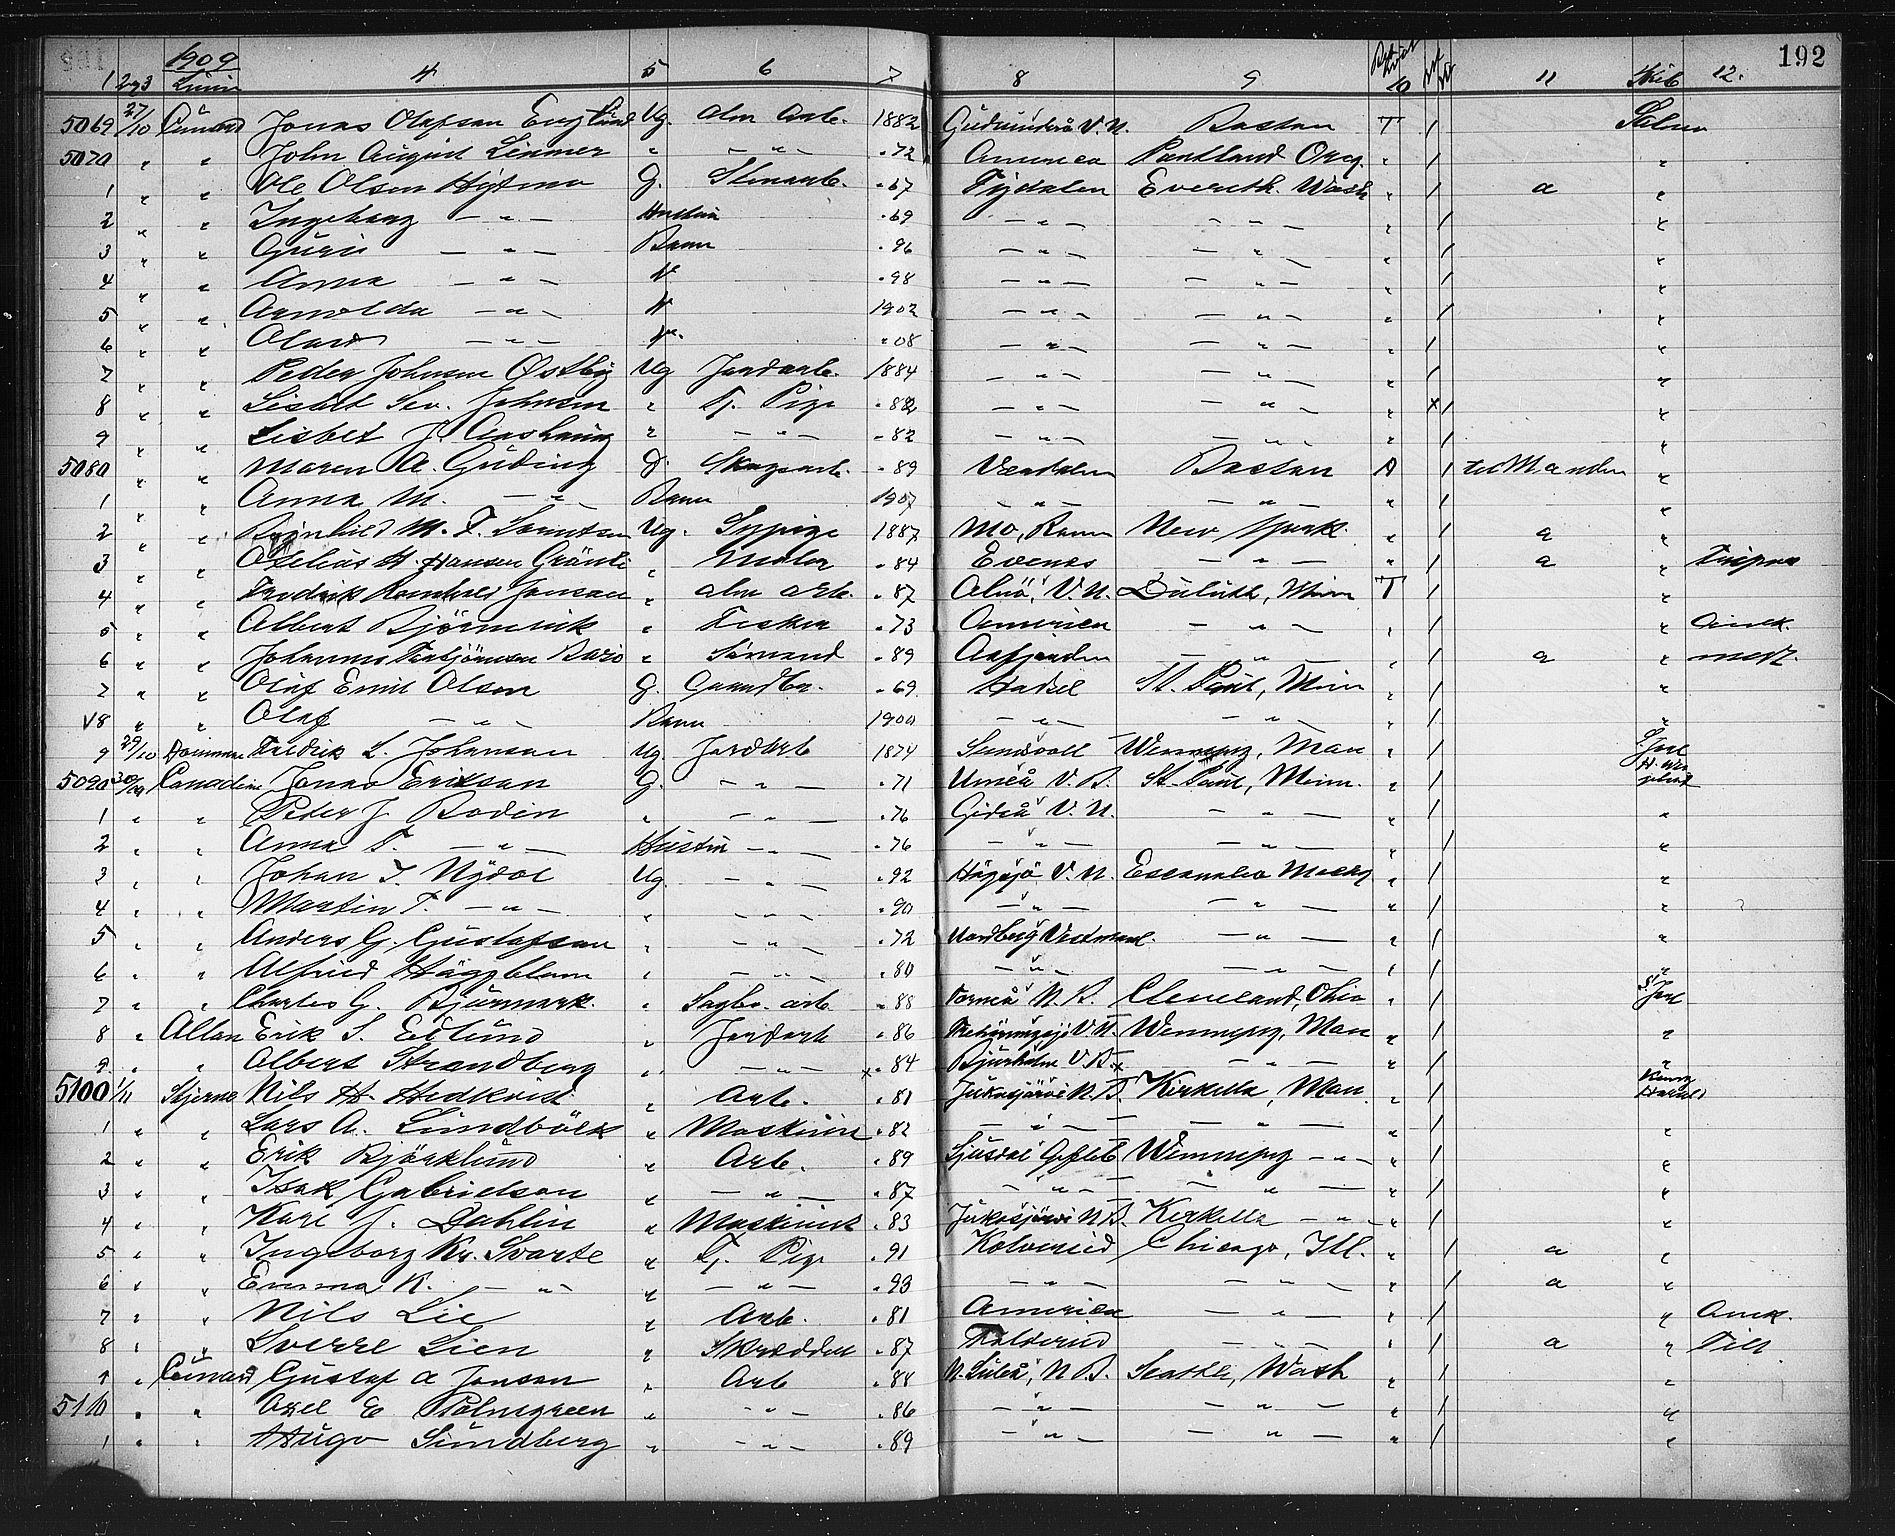 1909 192
1 2 og 3 Linie 4 5 6 7 8 9 10 11 Skib 12.
5069 27/10 Cunard Jonas Olafsen Englund Ug. alm Arb. 1882 V. N. Boston T / Salmo
5070 " " John August Linmer " — " — " 72 America Portland Oreg. " / "
1 " " Ole Olsen Hyttmo G. Stenarb. " 67 Tydalen Evereth. Wash " / a "
2 " " Ingeborg — " — Hustru " 69 — " — — " — " / "
3 " " Guru — " — Barn " 96 — " — — " — " / "
4 " " Anna — " — " " 98 — " — — " — " / "
5 " " Arnolda — " — " 1902 — " — — " — " / "
6 " " Olard — " — " " 08 — " — — " — " / "
7 " " Peder Johnsen Østby Ug Jordarb. 1884 — " — — " — " / "
8 " " Lisbet Sev. Johnsen " Tj. Pige " 82 — " — — " — " x / "
9 " " Lisbet J. Aashaug " — " — " 82 — " — — " — " / "
5080 " " Maren A. Guding D. Skogsarb. " 89 Værdalen Boston A / til Manden "
1 " " Anna M. — " — Barn 1907 — " — — " — " / "
2 " " M. F. Ug. Sypige 1887 Mo, Ranen New York " / a "
3 " " Ozelius H. Hansen " Maler " 84 Evenes — " — " / a "
4 " " Fredrik Jonsson " alm arb. " 87 Alnö, V. N. Duluth, Minn T / "
5 " " Albert " Fisker " 73 America — " — " / " Amk.
6 " " Johannes " Sømand " 89 Aafjorden — " — " / a " medt.
7 " " Olaf Emil Olsen G. Gaardbr. " 69 Hadsel St. Paul, Minn " / "
V8 " " Olaf — " — Barn 1900 — " — — " — " / "
9 29/10 Fredrik L. Johanson Ug. Jordarb 1874 Sundsvall Winnipeg, Man " / Jarl
5090 30/10 Canadian Jonas Erikson G. — " — " 71 Umeå V. B. St. Paul, Minn. " / H. Wergeland
1 " " Peter J. Bodin " — " — " 76 Gideå V. N. — " — " / "
2 " " Anna F. — " — Hustru — " — " 76 — " — — " — " / "
3 " " Johan T. Nydal Ug. — " — " 92 Hägsjö V. N. Escanaba " / "
4 " " Martin T. — " — " — " — " 90 — " — — " — " / "
5 " " Anders G. Gustafsson " — " — " 72 Nordberg Vestmanl. — " — " / "
6 " " Alfred Häggblom " — " — " 80 — " — — " — " / "
7 " " Charles G. Björnmark. " Sagbr. arb " 88 N. B. Cleveland, Ohio " / Jarl
8 " Allan Erik S. Edlund " Jordarb " 86 V. N. Winnipeg, Man " / "
9 " " Albert Strandberg " — " — x " 84 Bjurholm V. B. x — " — " / "
5100 1/11 Stjerne Nils H. Hedkvist " Arb. " 81 Jukasjärvi N. B. Kirkella, Man. " / Kong Harald
1 " " Lars A. Lundbäck " Maskinist " 82 — " — — " — " / "
2 " " Erik Björklund " Arb. " 89 Ljusdal Gefleb Winnipeg — " — " / "
3 " " Isak Gabrielson " — " — " 87 — " — " " " / "
4 " " Karl J. Dahlin " Maskinist " 83 Jukasjärvi N. B. Kirkella — " — " / "
5 " " Ingeborg Kr. Svarte " Tj. Pige " 91 Kolvereid Chicago, Ill. " / a "
6 " " Emma K. — " — " — " — " 93 — " — — " — " / a "
7 " " Nils Lie " Arb. " 81 America — " — " / " Amk.
8 " " Sverre Lien " Skrædder " 87 — " — " / a " Tilt.
9 " Cunard Gustaf A Jonson " Arb " 88 N. Luleå, N. B. Seattle, Wash " / "
5110 " " Axel E Palmgreen " — " — " 86 — " — — " — " / "
1 " " Hugo Sundberg " — " — " 89 — " — — " — " / "